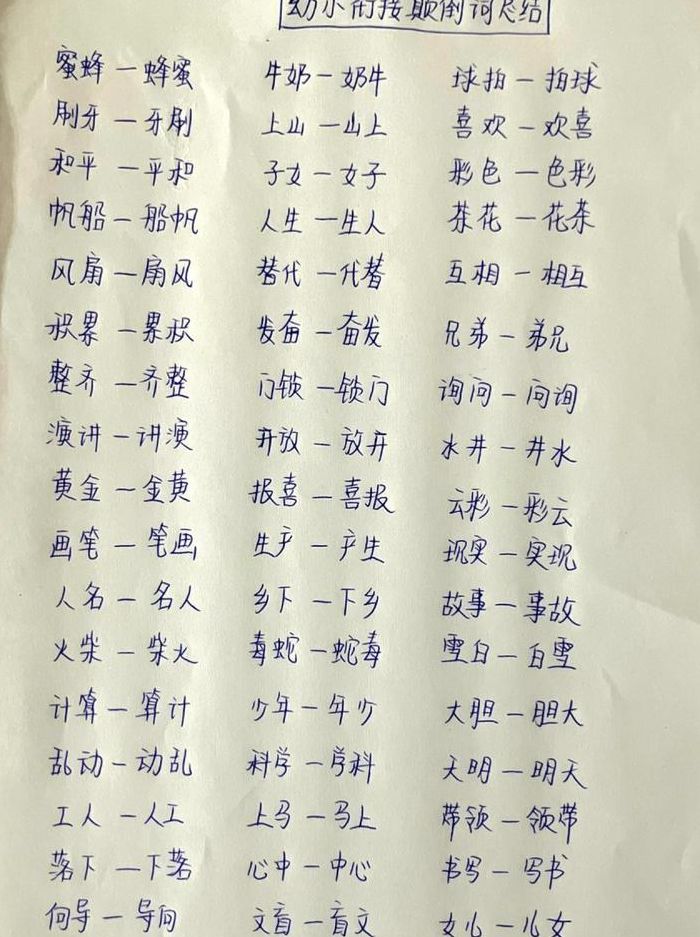 幼小衔接颠倒词总结
蜜蜂—蜂蜜 牛奶—奶牛 球拍—拍球
刷牙—牙刷 上山—山上 喜欢—欢喜
和平—平和 子女—女子 彩色—色彩
帆船—船帆 人生—生人 茶花—花茶
风扇—扇风 替代—代替 互相—相互
积累—累积 发奋—奋发 兄弟—弟兄
整齐—齐整 门锁—锁门 询问—问询
演讲—讲演 开放—放开 水井—井水
黄金—金黄 报喜—喜报 云彩—彩云
画笔—笔画 生产—产生 现实—实现
人名—名人 乡下—下乡 故事—事故
火柴—柴火 毒蛇—蛇毒 雪白—白雪
计算—算计 少年—年少 大胆—胆大
乱动—动乱 科学—学科 天明—明天
工人—人工 上马—马上 带领—领带
落下—下落 心中—中心 书写—写书
向导—导向 文盲—盲文 女儿—儿女